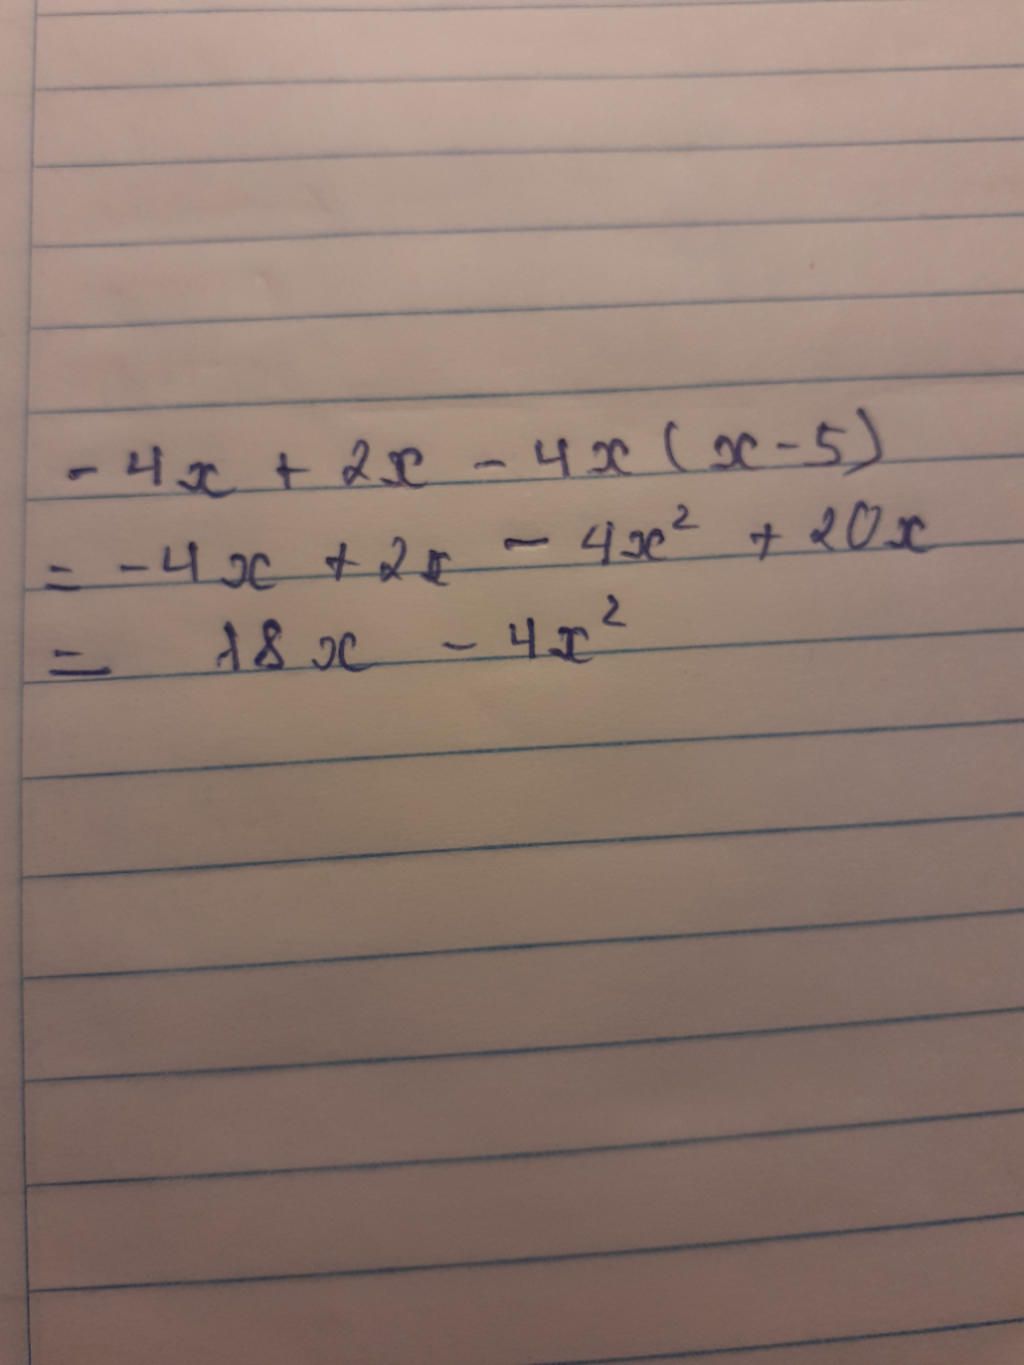 - 4x + 2x - 4x (x - 5)
= - 4x + 2x - 4x² + 20x
= 18x - 4x²